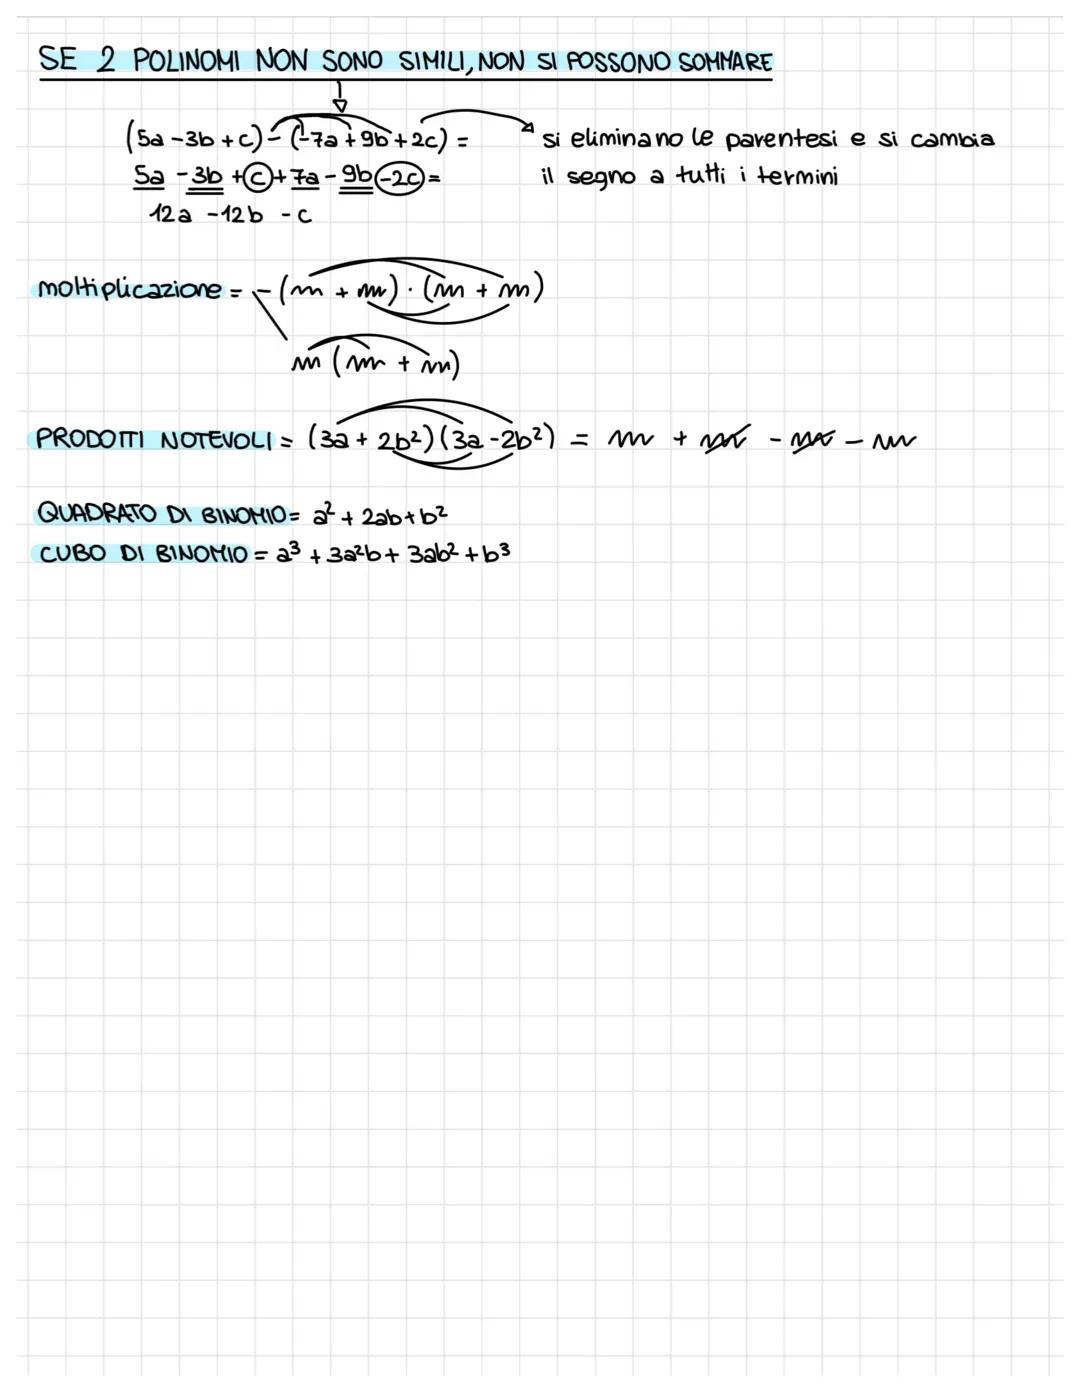 SE 2 POLINOMI NON SONO SIMILI, NON SI POSSONO SOMMARE
(5a - 3b + c) - (-7a + 9b + 2c) =
si eliminano le parentesi e si cambia
5a - 3b + c + 7a - 9b - 2c =
il segno a tutti i termini
12a - 12b - c
moltiplicazione = - (m + m) · (m + m)
m (m + m)
PRODOTTI NOTEVOLI = (3a + 2b²)(3a - 2b²) = m + m - m - m
QUADRATO DI BINOMIO = a² + 2ab + b²
CUBO DI BINOMIO = a³ + 3a²b + 3ab² + b³